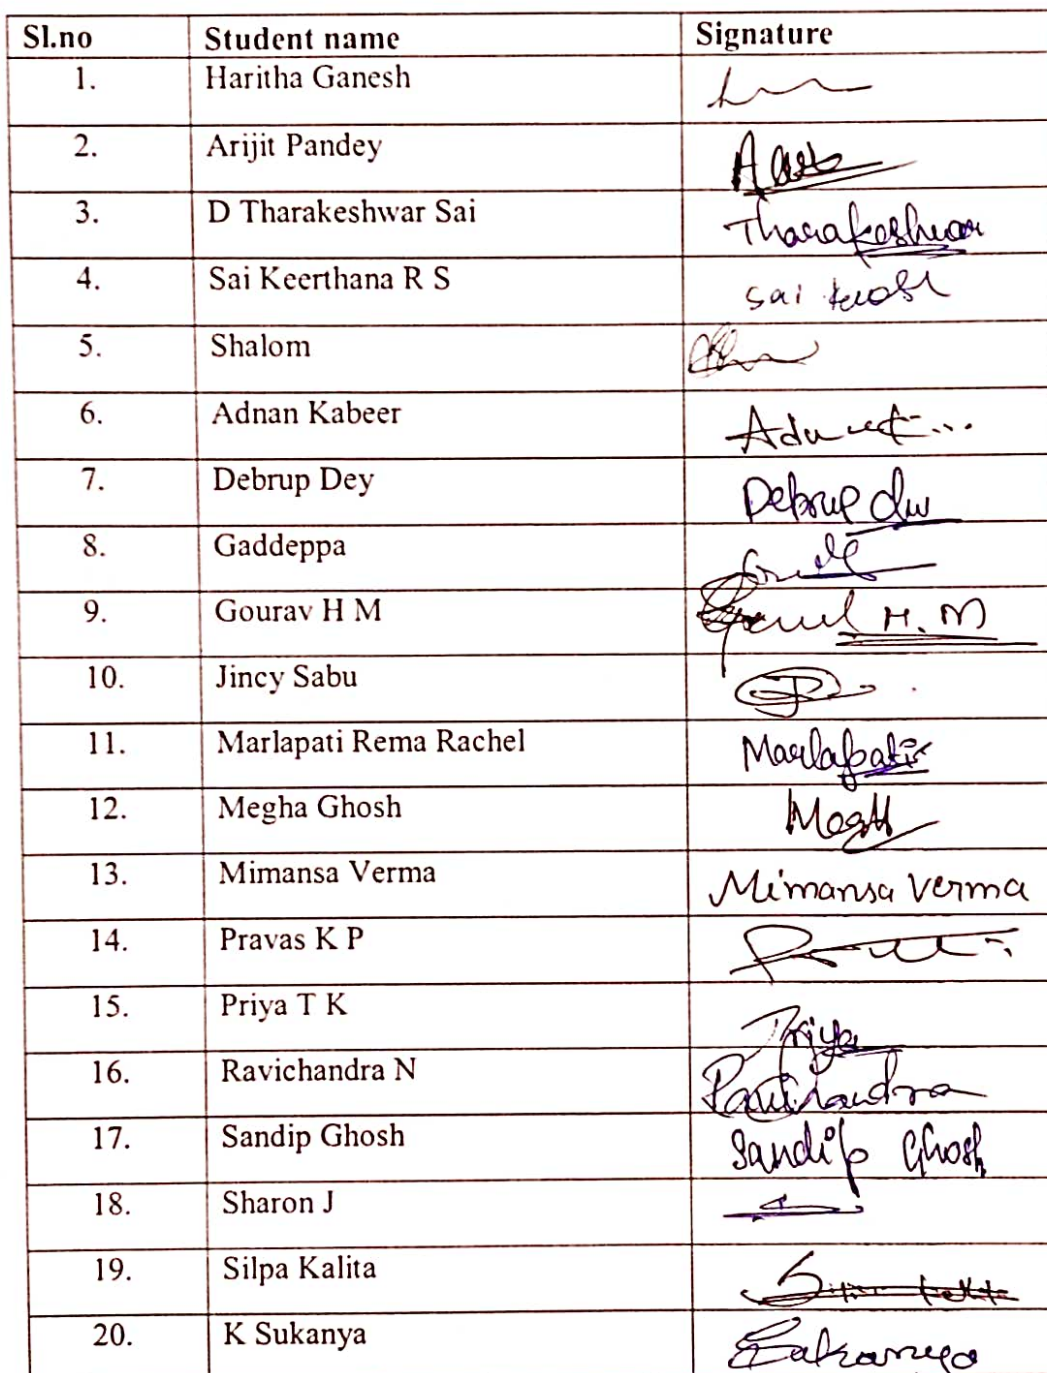 Sl.no Student name Signature
1. Haritha Ganesh
2. Arijit Pandey
3. D Tharakeshwar Sai Tharakeshwar
4. Sai Keerthana R S Sai
5. Shalom
6. Adnan Kabeer
7. Debrup Dey Debrup
8. Gaddeppa
9. Gourav H M H.M
10. Jincy Sabu
11. Marlapati Rema Rachel Marlapati
12. Megha Ghosh
13. Mimansa Verma Mimansa Verma
14. Pravas K P
15. Priya T K Priya
16. Ravichandra N
17. Sandip Ghosh Sandip Ghosh
18. Sharon J
19. Silpa Kalita
20. K Sukanya